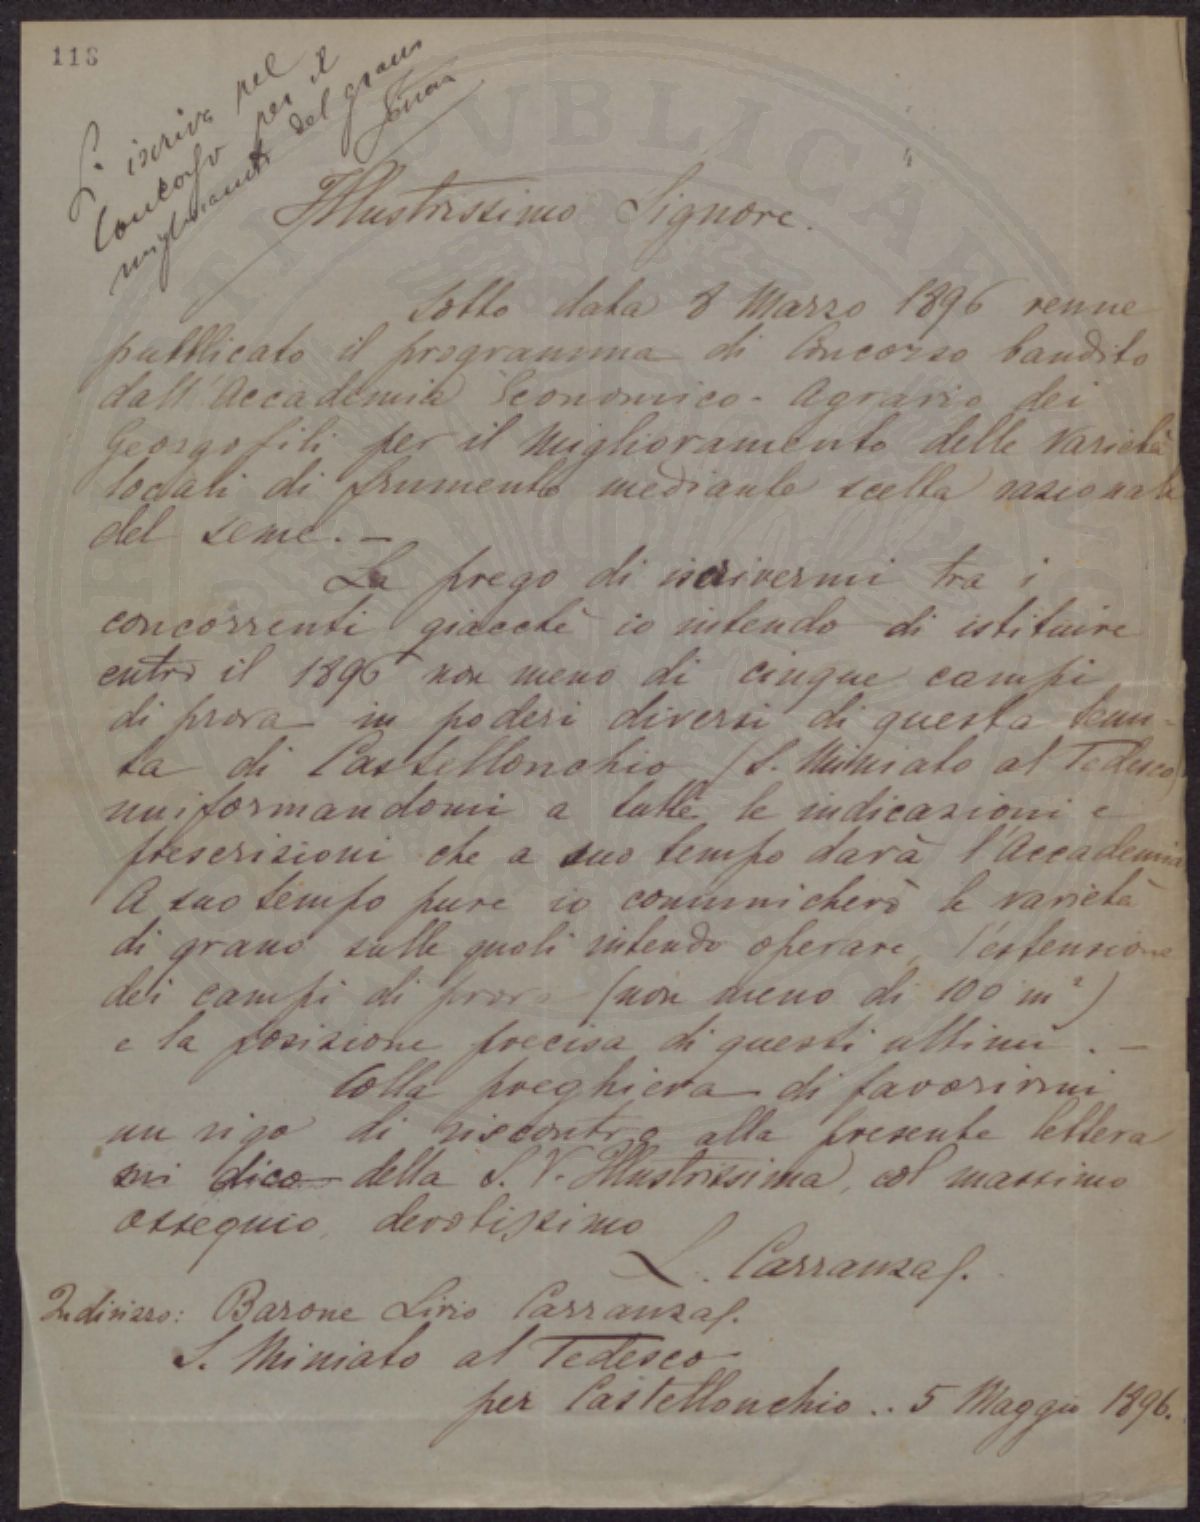 118
Si iscriva pel
Concorso per il
miglioramento del grano
Illustrissimo Signore.
Sotto data 8 Marzo 1896 venne
pubblicato il programma di Concorso bandito
dall'Accademia Economico-Agraria dei
Georgofili per il Miglioramento delle Varietà
locali di frumento mediante scelta razionale
del seme. —
La prego di iscrivermi tra i
concorrenti giacchè io intendo di istituire
entro il 1896 non meno di cinque campi
di prova in poderi diversi di questa tenu-
ta di Castellonchio (S. Miniato al Tedesco)
uniformandomi a tutte le indicazioni e
prescrizioni che a suo tempo darà l'Accademia
A suo tempo pure io comunicherò le varietà
di grano sulle quali intendo operare, l'estensione
dei campi di prova (non meno di 100 m²)
e la posizione precisa di questi ultimi. —
Colla preghiera di favorirmi
un rigo di riscontro alla presente lettera
mi dico della S. V. Illustrissima, col massimo
ossequio, devotissimo
L. Carranza f.
Indirizzo: Barone Livio Carranza f.
S. Miniato al Tedesco
per Castellonchio .. 5 Maggio 1896.